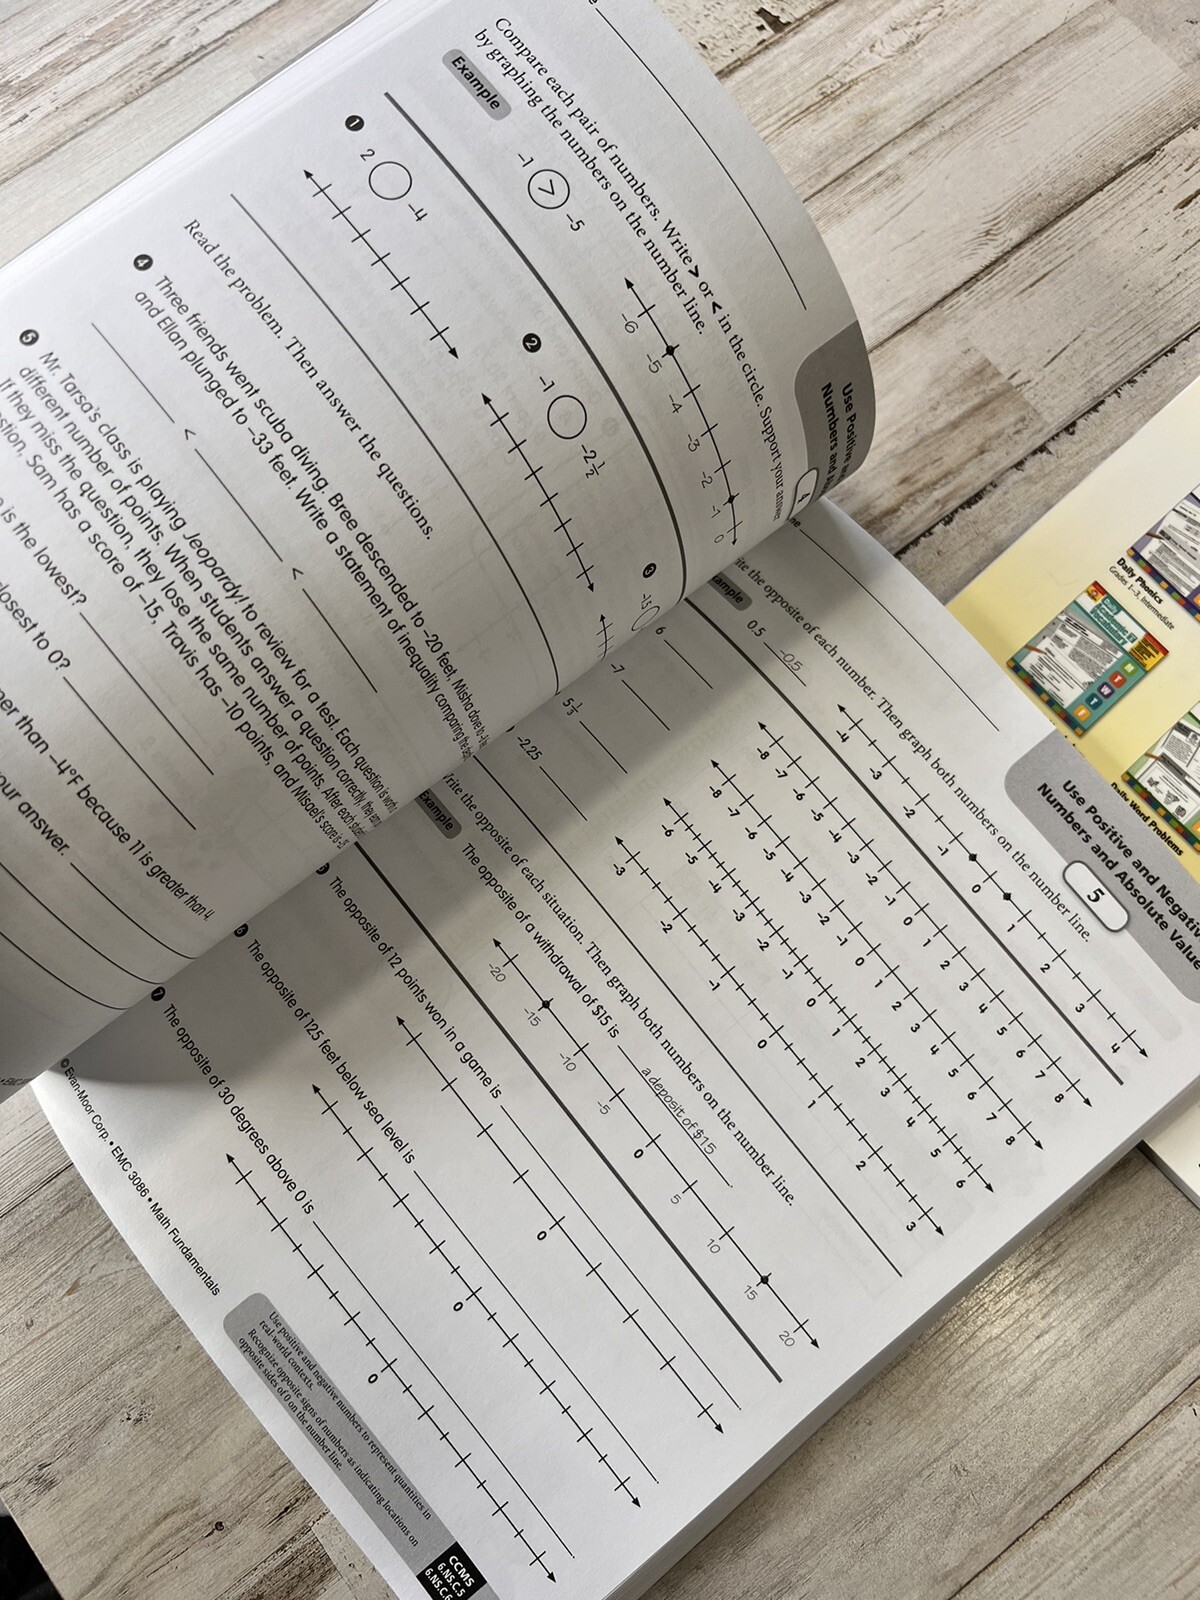 Compare each pair of numbers. Write > or < in the circle. Support your answer
by graphing the numbers on the number line.
Example
-1 > -5
-6 -5 -4 -3 -2 -1 0
1 2 -4
2 -1 -2 1/2
3
Read the problem. Then answer the questions.
4 Three friends went scuba diving. Bree descended to -20 feet, Misha dove to
and Ellan plunged to -33 feet. Write a statement of inequality comparing the
< <
5 Mr. Tarsa's class is playing Jeopardy! to review for a test. Each question is worth
different number of points. When students answer a question correctly, they
If they miss the question, they lose the same number of points. After each
Sam has a score of -15, Travis has -10 points, and Misael's score is
is the lowest?
closest to 0?
than -4°F because 11 is greater than 4
your answer.
Use Positive
Numbers and
4
Use Positive and Negative
Numbers and Absolute Value
5
the opposite of each number. Then graph both numbers on the number line.
0.5 -0.5
-4 -3 -2 -1 0 1 2 3 4
6
-8 -7 -6 -5 -4 -3 -2 -1 0 1 2 3 4 5 6 7 8
-7
-8 -7 -6 -5 -4 -3 -2 -1 0 1 2 3 4 5 6 7 8
5 1/3
-6 -5 -4 -3 -2 -1 0 1 2 3 4 5 6
-2.25
-3 -2 -1 0 1 2 3
Write the opposite of each situation. Then graph both numbers on the number line.
Example
The opposite of a withdrawal of $15 is a deposit of $15
-20 -15 -10 -5 0 5 10 15 20
The opposite of 12 points won in a game is
0
6 The opposite of 125 feet below sea level is
0
7 The opposite of 30 degrees above 0 is
0
© Evan-Moor Corp. • EMC 3086 • Math Fundamentals
Use positive and negative numbers to represent quantities in
real-world contexts.
Recognize opposite signs of numbers as indicating locations on
opposite sides of 0 on the number line.
CCMS
6.NS.C.5
6.NS.C.6
Daily Phonics
Grades 1–3, Intermediate
Daily Word Problems